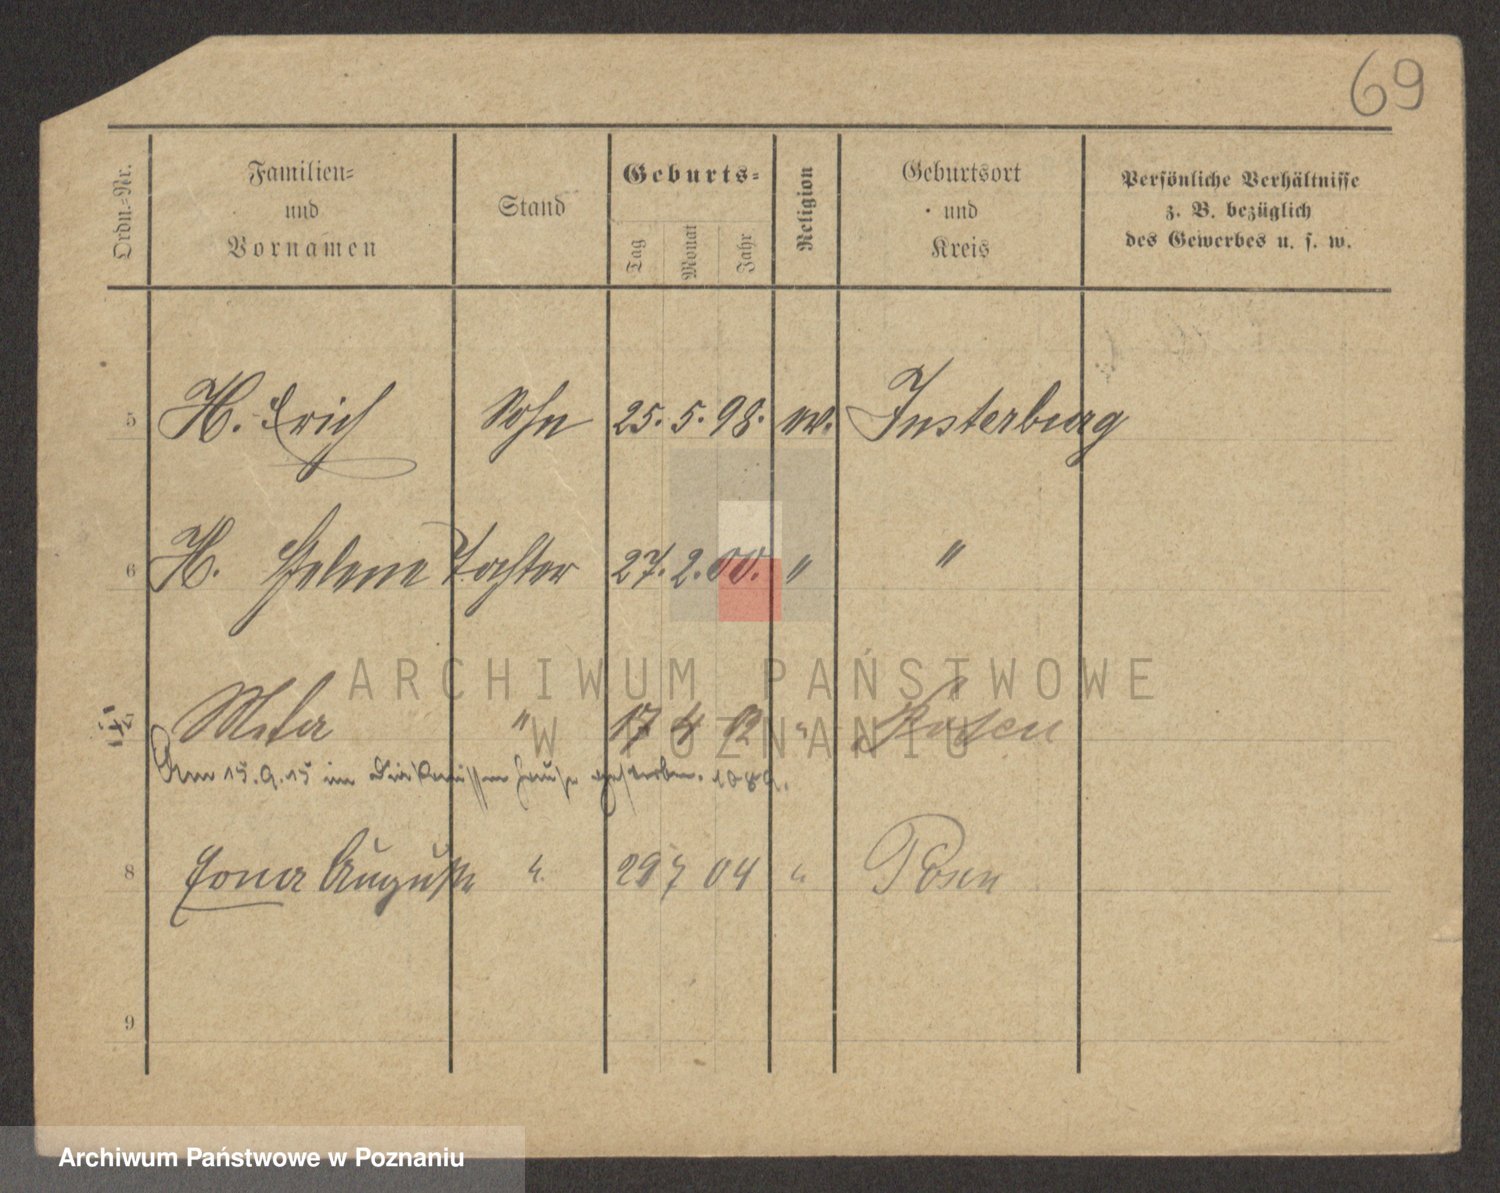 69
Ordn.-Nr.
Familien-
und
Vornamen
Stand
Geburts-
Tag
Monat
Jahr
Religion
Geburtsort
und
Kreis
Persönliche Verhältnisse
z. B. bezüglich
des Gewerbes u. s. w.
5 H. Erich Sohn 25. 5. 98. ev. Insterburg
6 H. Helene Tochter 27. 2. 00. " "
7 Meta " 17 4 " Posen
Am 15.9.15 im Diakonissenhause gestorben. 1089.
8 Erna Auguste " 29 7 04 " Posen
9
ARCHIWUM PAŃSTWOWE
W POZNANIU
Archiwum Państwowe w Poznaniu